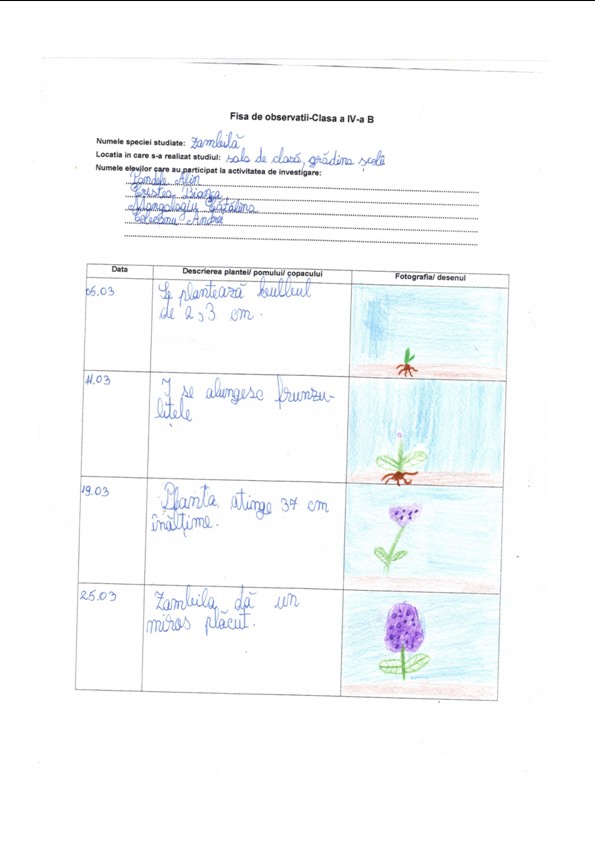 Fisa de observatii-Clasa a IV-a B
Numele speciei studiate: Zambilă
Locatia in care s-a realizat studiul: sala de clasă, grădina școlii
Numele elevilor care au participat la activitatea de investigare:
Alin
Cristea Bianca
Cătălina
Andrei
Data Descrierea plantei/ pomului/ copacului Fotografia/ desenul
05.03 Se plantează bulbul
de 2,3 cm.
11.03 I se alungesc frunzu-
lițele
19.03 Planta atinge 37 cm
înălțime.
25.03 Zambila dă un
miros plăcut.